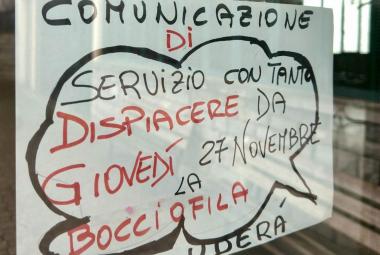 COMUNICAZIONE
DI
SERVIZIO CON TANTO
DISPIACERE DA
GIOVEDÍ 27 NOVEMBRE
LA
BOCCIOFILA